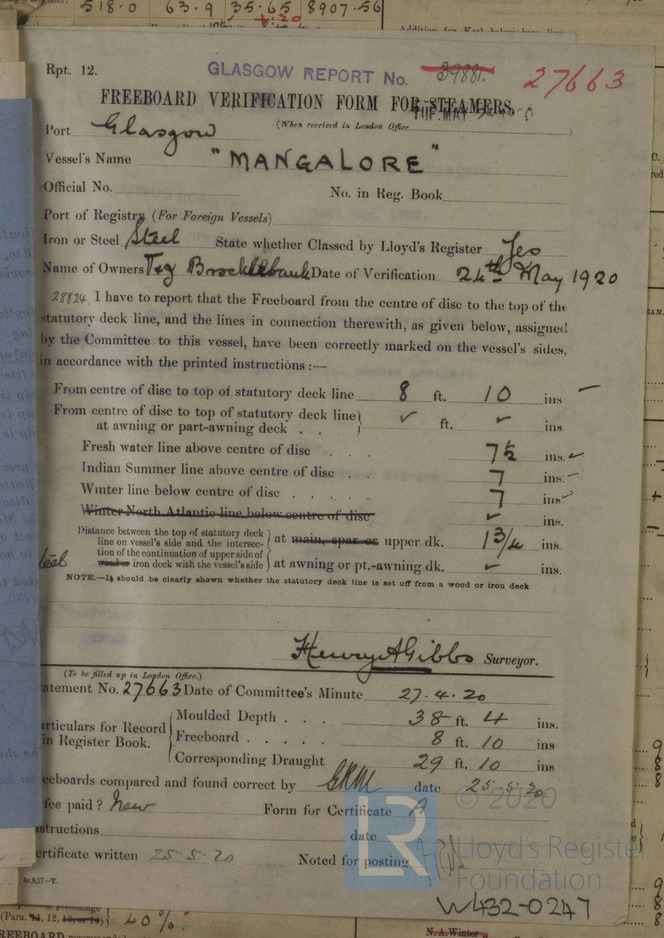 518.0 63.9 35.65 8907.56
Rpt. 12. GLASGOW REPORT No. 39881. 27663
FREEBOARD VERIFICATION FORM FOR STEAMERS.
Port Glasgow (When received in London Office
Vessel's Name "MANGALORE"
Official No. No. in Reg. Book
Port of Registry (For Foreign Vessels)
Iron or Steel Steel State whether Classed by Lloyd's Register Yes
Name of Owners T & J Brocklebank Date of Verification 24th May 1920
28824 I have to report that the Freeboard from the centre of disc to the top of the
statutory deck line, and the lines in connection therewith, as given below, assigned
by the Committee to this vessel, have been correctly marked on the vessel's sides,
in accordance with the printed instructions :—
From centre of disc to top of statutory deck line 8 ft. 10 ins
From centre of disc to top of statutory deck line
at awning or part-awning deck . . . ✓ ft. ✓ ins
Fresh water line above centre of disc . . . 7½ ins. ✓
Indian Summer line above centre of disc . . 7 ins.
Winter line below centre of disc . . . . . 7 ins ✓
Winter North Atlantic line below centre of disc ✓ ins.
Distance between the top of statutory deck
line on vessel's side and the intersec- at main, spar or upper dk. 1 3/4 ins.
tion of the continuation of upper side of
steel wood or iron deck with the vessel's side at awning or pt.-awning dk. ✓ ins.
NOTE.—It should be clearly shown whether the statutory deck line is set off from a wood or iron deck
Henry A Gibbs Surveyor.
(To be filled up in London Office.)
tatement No. 27663 Date of Committee's Minute 27.4.20
articulars for Record
in Register Book.
Moulded Depth . . . 38 ft. 4 ins.
Freeboard . . . . . 8 ft. 10 ins.
Corresponding Draught 29 ft. 10 ins
eeboards compared and found correct by date 25.5.20
fee paid? New Form for Certificate A
structions date
ertificate written 25.5.20 Noted for posting
© 2020
LR Lloyd's Register
Foundation
W432-0247
(Para. 11, 12, 13, or 14) 40%.
REEBOARD
N.A. Winter